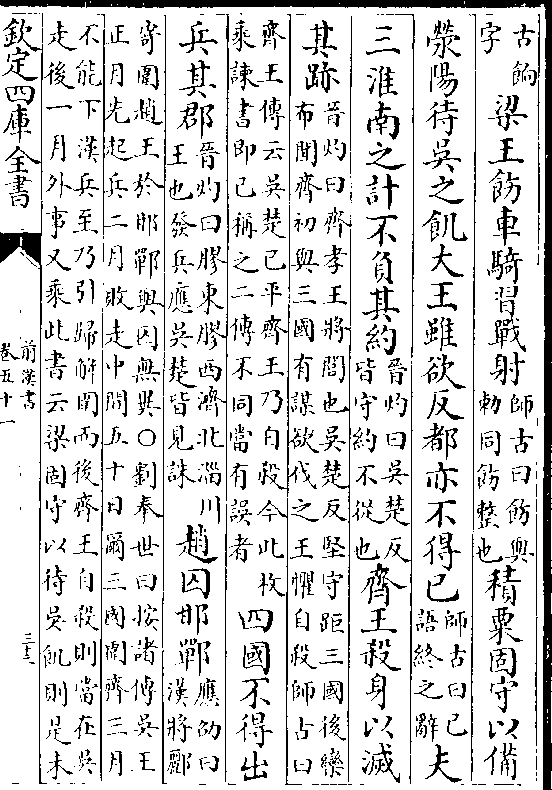 古餉字梁王飭車騎習戰射師古曰飭與勑同飭整也積粟固守以備
滎陽待吳之飢大王雖欲反都亦不得已師古曰已語終之辭夫
三淮南之計不負其約晉灼曰吳楚反皆守約不從也齊王殺身以滅
其跡晉灼曰齊孝王將閭也吳楚反堅守距三國後欒布聞齊初與三國有謀欲伐之王懼自殺師古曰
齊王傳云吳楚已平齊王乃自殺今此枚乘諫書即已稱之二傳不同當有誤者四國不得出
兵其郡晉灼曰膠東膠西濟北淄川王也發兵應吳楚皆見誅趙囚邯鄲應劭曰漢將酈
寄圍趙王於邯鄲與囚無異○劉奉世曰按諸傳吳王正月先起兵二月敗走中間五十日爾三國圍齊三月
不能下漢兵至乃引歸解圍而後齊王自殺則當在吳走後一月外事又乘此書云梁固守以待吳飢則是未
欽定四庫全書
前漢書
卷五十一
三十三